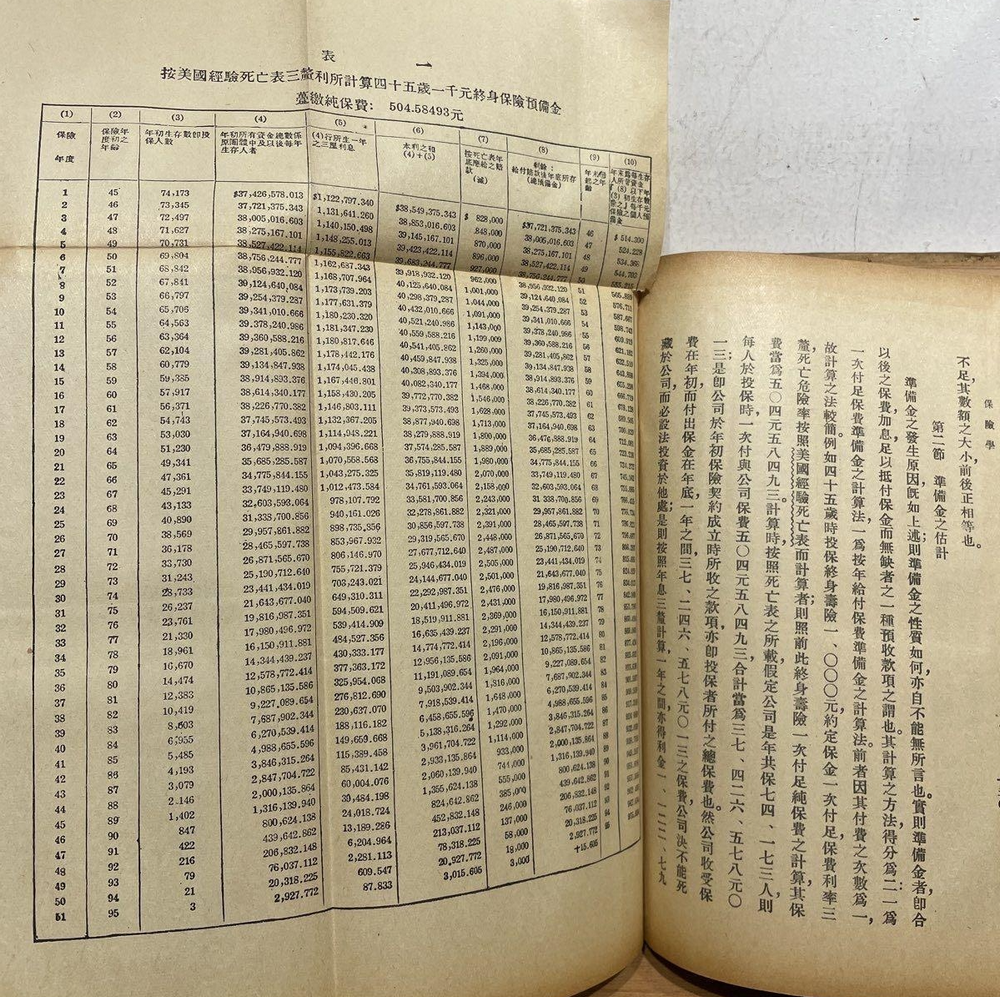 表 一
按美國經驗死亡表三釐利所計算四十五歲一千元終身保險預備金
躉繳純保費： 504.58493元
(1) (2) (3) (4) (5) (6) (7) (8) (9) (10)
保險年度 保險年度初之年齡 年初生存數即投保人數 年初所有資金總數係原團體中及以後每年生存人者 (4)行所生一年之三厘利息 本利之和(4)+(5) 按死亡表年底應給之賠款(減) 剩餘：給付賠款後年底所存(總預備金)
1 45 74,173 $37,426,578.013 $1,122,797.340 $38,549,375.343 $ 828,000 $37,721,375.343 46 $ 514.300
2 46 73,345 37,721,375.343 1,131,641.260 38,853,016.603 848,000 38,005,016.603 47 524.228
3 47 72,497 38,005,016.603 1,140,150.498 39,145,167.101 870,000 38,275,167.101 48
4 48 71,627 38,275,167.101 1,148,255.013 39,423,422.114 896,000 38,527,422.114 49 544.702
5 49 70,731 38,527,422.114 1,155,822.663 39,683,244.777 927,000 38,756,244.777 50
6 50 69,804 38,756,244.777 1,162,687.343 39,918,932.120 962,000 38,956,932.120 51
7 51 68,842 38,956,932.120 1,168,707.964 40,125,640.084 1,001,000 39,124,640.084 52
8 52 67,841 39,124,640.084 1,173,739.203 40,298,379.287 1,044,000 39,254,379.287 53
9 53 66,797 39,254,379.287 1,177,631.379 40,432,010.666 1,091,000 39,341,010.666 54
10 54 65,706 39,341,010.666 1,180,230.320 40,521,240.986 1,143,000 39,378,240.986 55
11 55 64,563 39,378,240.986 1,181,347.230 40,559,588.216 1,199,000 39,360,588.216 56
12 56 63,364 39,360,588.216 1,180,817.646 40,541,405.862 1,260,000 39,281,405.862 57
13 57 62,104 39,281,405.862 1,178,442.176 40,459,847.938 1,325,000 39,134,847.938 58
14 58 60,779 39,134,847.938 1,174,045.438 40,308,893.376 1,394,000 38,914,893.376 59
15 59 59,385 38,914,893.376 1,167,446.801 40,082,340.177 1,468,000 38,614,340.177 60
16 60 57,917 38,614,340.177 1,158,430.205 39,772,770.382 1,546,000 38,226,770.382 61
17 61 56,371 38,226,770.382 1,146,803.111 39,373,573.493 1,628,000 37,745,573.493 62
18 62 54,743 37,745,573.493 1,132,367.205 38,877,940.698 1,713,000 37,164,940.698 63
19 63 53,030 37,164,940.698 1,114,948.221 38,279,888.919 1,800,000 36,479,888.919 64
20 64 51,230 36,479,888.919 1,094,396.668 37,574,285.587 1,889,000 35,685,285.587 65
21 65 49,341 35,685,285.587 1,070,558.568 36,755,844.155 1,980,000 34,775,844.155
22 66 47,361 34,775,844.155 1,043,275.325 35,819,119.480 2,070,000 33,749,119.480
23 67 45,291 33,749,119.480 1,012,473.584 34,761,593.064 2,158,000 32,603,593.064
24 68 43,133 32,603,593.064 978,107.792 33,581,700.856 2,243,000 31,338,700.856
25 69 40,890 31,338,700.856 940,161.026 32,278,861.882 2,321,000 29,957,861.882
26 70 38,569 29,957,861.882 898,735.856 30,856,597.738 2,391,000 28,465,597.738
27 71 36,178 28,465,597.738 853,967.932 29,319,565.670 2,448,000 26,871,565.670
28 72 33,730 26,871,565.670 806,146.970 27,677,712.640 2,487,000 25,190,712.640
29 73 31,243 25,190,712.640 755,721.379 25,946,434.019 2,505,000 23,441,434.019
30 74 23,733 23,441,434.019 703,243.021 24,144,677.040 2,501,000 21,643,677.040
31 75 26,237 21,643,677.040 649,310.311 22,292,987.351 2,476,000 19,816,987.351
32 76 23,761 19,816,987.351 594,509.621 20,411,496.972 2,431,000 17,980,496.972
33 77 21,330 17,980,496.972 539,414.909 18,519,911.881 2,369,000 16,150,911.881
34 78 18,961 16,150,911.881 484,527.356 16,635,439.237 2,291,000 14,344,439.237
35 79 16,670 14,344,439.237 430,333.177 14,774,772.414 2,196,000 12,578,772.414
36 80 14,474 12,578,772.414 377,363.172 12,956,135.586 2,091,000 10,865,135.586
37 81 12,383 10,865,135.586 325,954.068 11,191,089.654 1,964,000 9,227,089.654
38 82 10,419 9,227,089.654 276,812.690 9,503,902.344 1,816,000 7,687,902.344
39 83 8,603 7,687,902.344 230,637.070 7,918,539.414 1,648,000 6,270,539.414
40 84 6,955 6,270,539.414 188,116.182 6,458,655.596 1,470,000 4,988,655.596
41 85 5,485 4,988,655.596 149,659.668 5,138,316.264 1,292,000 3,846,315.264
42 86 4,193 3,846,315.264 115,389.458 3,961,704.722 1,114,000 2,847,704.722
43 87 3,079 2,847,704.722 85,431.142 2,933,135.864 933,000 2,000,135.864
44 88 2.146 2,000,135.864 60,004.076 2,060,139.940 744,000 1,316,139.940
45 89 1,402 1,316,139.940 30,484.198 1,355,624.138 555,000 800,624.138
46 90 847 800,624.138 24,018.724 824,642.862 385,000 439,642.862
47 91 422 439,642.862 13,189.286 452,832.148 246,000 206,832.148
48 92 216 206,832.148 6,204.964 213,037.112 137,000 76,037.112
49 93 79 76,037.112 2,281.113 78,318.225 58,000 20,318.225
50 94 21 20,318.225 609.547 20,927.772 18,000 2,927.772
51 95 3 2,927.772 87.833 3,015.605 3,000 +15.605
保險學
不足，其數額之大小前後正相等也。
第二節 準備金之估計
準備金之發生原因既如上述，則準備金之性質如何，亦自不能無所言也。實則準備金者，即合
以後之保費，加息足以抵付保金而無缺者之一種預收款項之謂也。其計算之方法得分爲二：一爲
一次付足保費準備金之計算法；一爲按年給付保費準備金之計算法。前者因其付費之次數爲一，
故計算之法較簡。例如四十五歲時投保終身壽險一、〇〇〇元，約定保金一次付足，保費利率三
釐，死亡危險率按照美國經驗死亡表而計算者，則照前此終身壽險一次付足純保費之計算，其保
費當爲五〇四元五八四九三。計算時按照死亡表之所載，假定公司是年共保七四、一七三人，則
每人於投保時，一次付與公司保費五〇四元五八四九三，合計當爲三七、四二六、五七八元〇
一三；是即公司於年初保險契約成立時所收之款項，亦即投保者所付之總保費也。然公司收受保
費在年初，而付出保金在年底，一年之間，三七、二四六、五七八元〇一三之保費，公司決不能死
藏於公司，而必設法投資於他處；是則按照年息三釐計算，一年之間，亦得利金一、一二二、七九